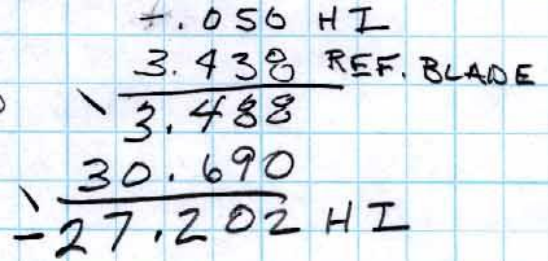 -.050 HI
3.438 REF. BLADE
3.488
30.690
-27.202 HI